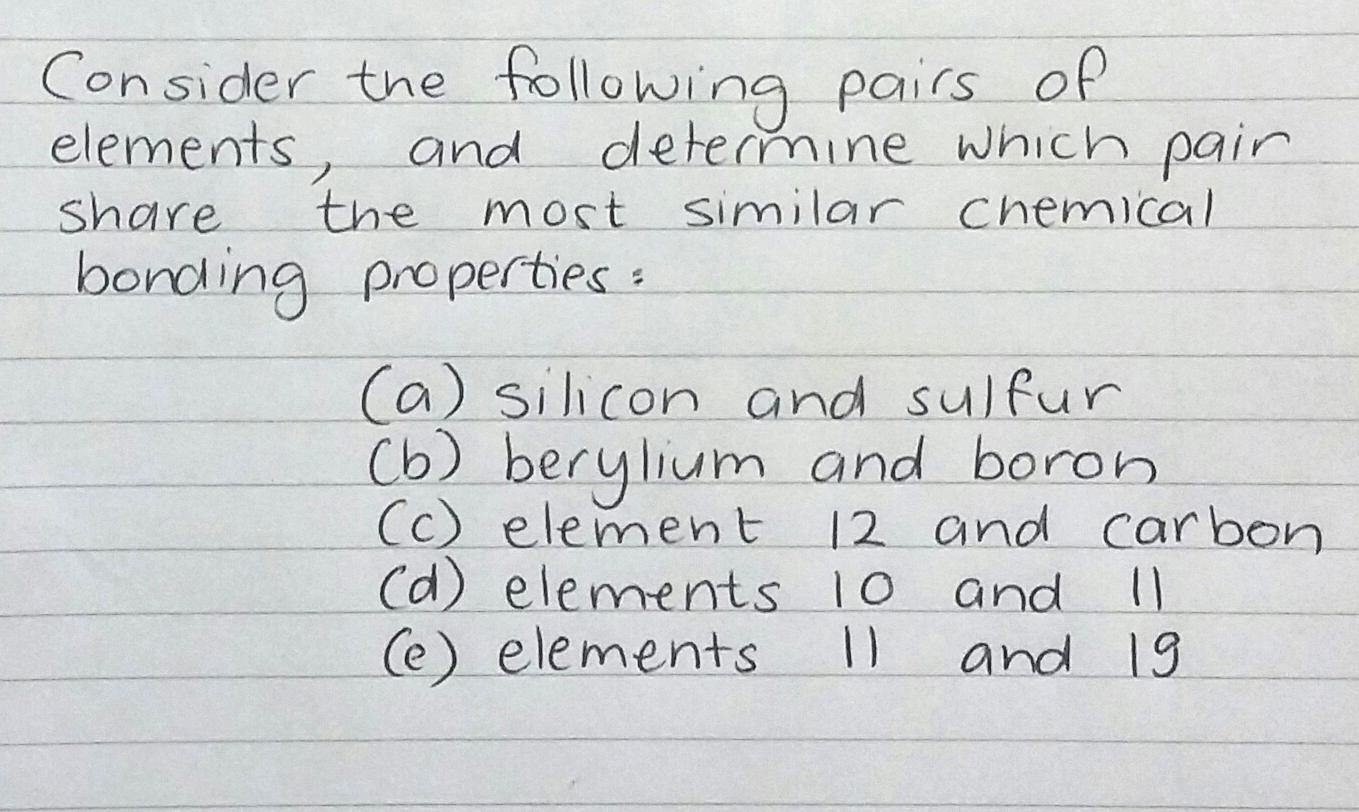 Consider the following pairs of
elements, and determine which pair
share the most similar chemical
bonding properties:
(a) silicon and sulfur
(b) berylium and boron
(c) element 12 and carbon
(d) elements 10 and 11
(e) elements 11 and 19